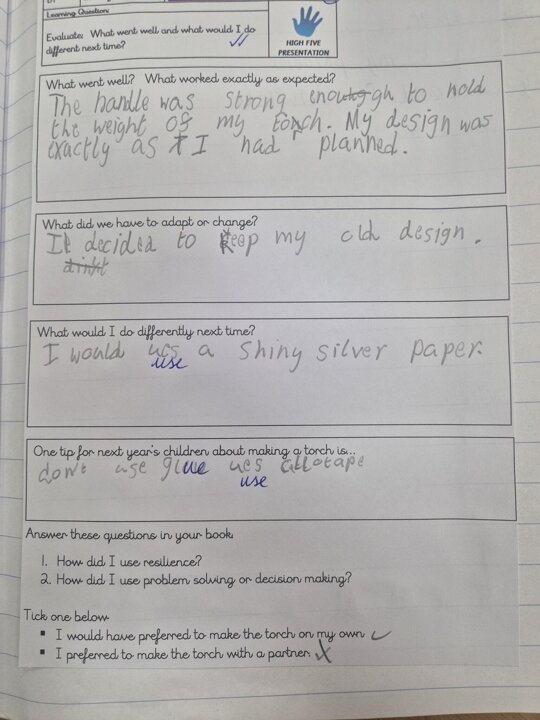 Learning Question:
Evaluate: What went well and what would I do
different next time?
HIGH FIVE
PRESENTATION
What went well? What worked exactly as expected?
The handle was strong enough to hold
the weight of my torch. My design was
exactly as I had planned.
What did we have to adapt or change?
I decided to keep my old design.
didnt
What would I do differently next time?
I would ues a shiny silver paper.
use
One tip for next year's children about making a torch is...
don't use glue ues allotape
use
Answer these questions in your book.
1. How did I use resilience?
2. How did I use problem solving or decision making?
Tick one below.
▪ I would have preferred to make the torch on my own ✓
▪ I preferred to make the torch with a partner. X